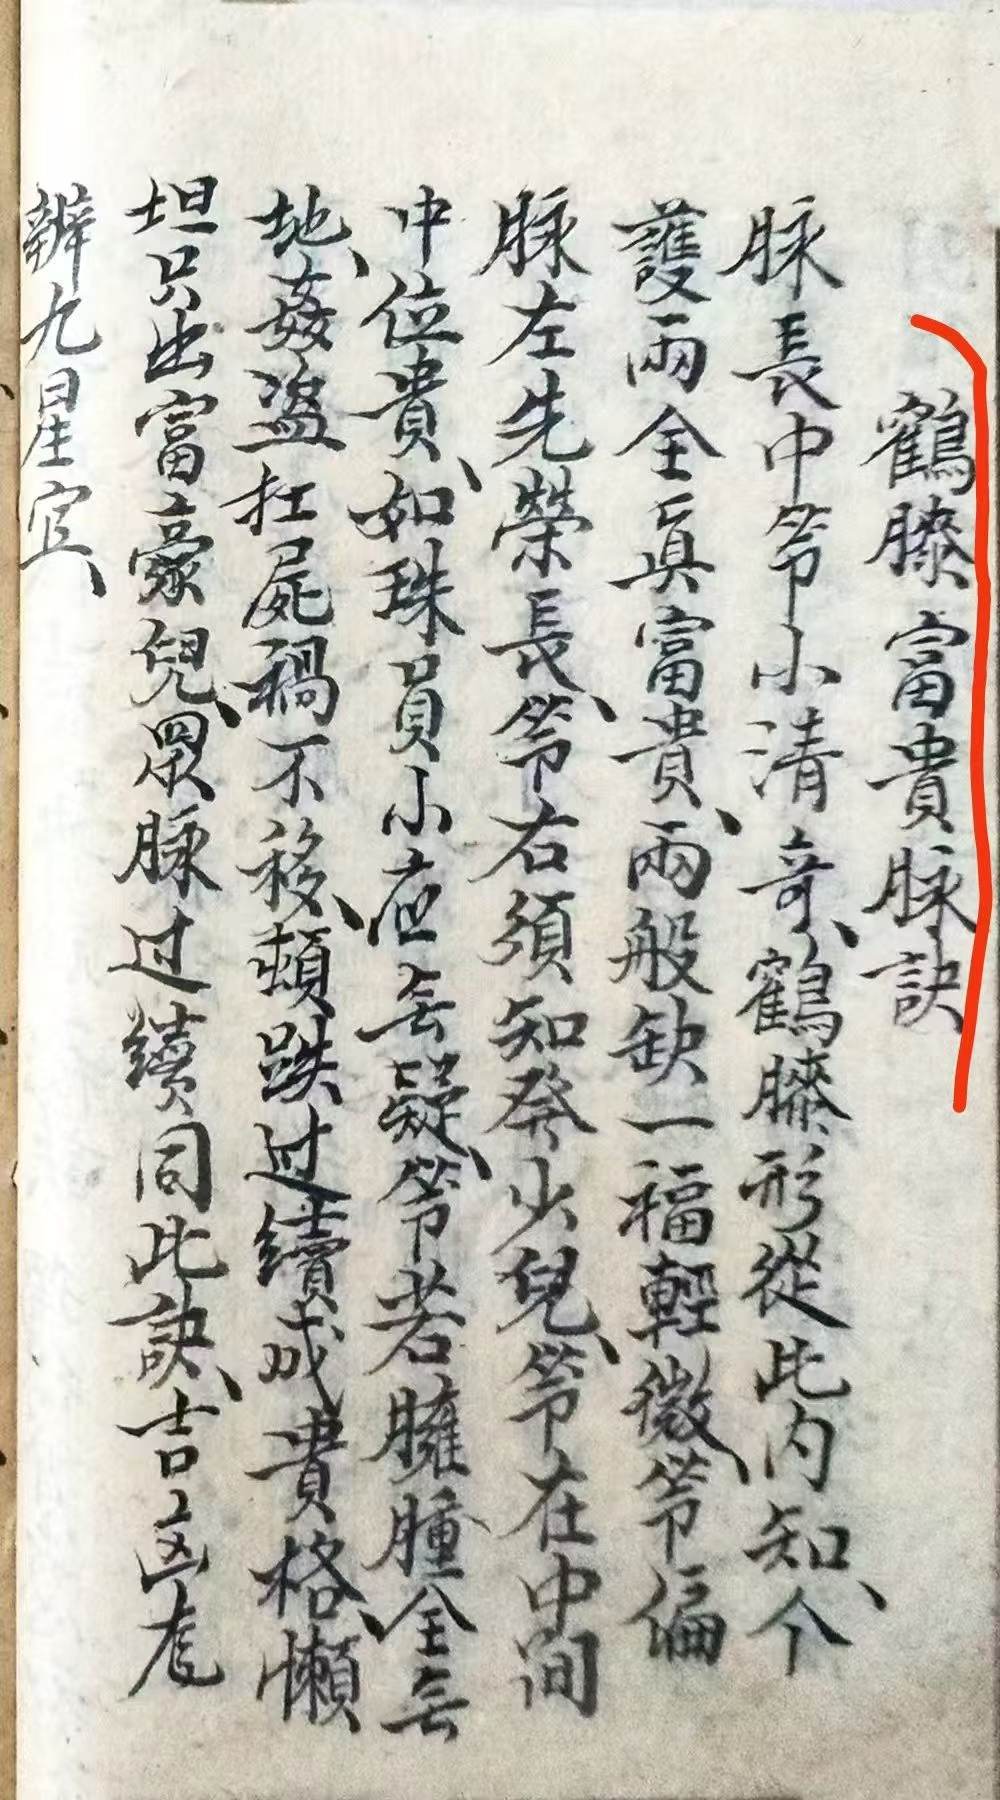 鶴膝富貴脉訣
脉長中節小清奇、鶴膝形從此内知、个
護兩全真富貴、兩般缺一福輕微、節偏
脉左先榮長、節右須知發少兒、節在中间
中位貴、如珠員小应無疑、節若臃腫全無
地、姦盜扛屍禍不移、頓跌过續成貴格、懶
坦只出富豪兒、眾脉过續同此訣、吉凶
辨九星宜、